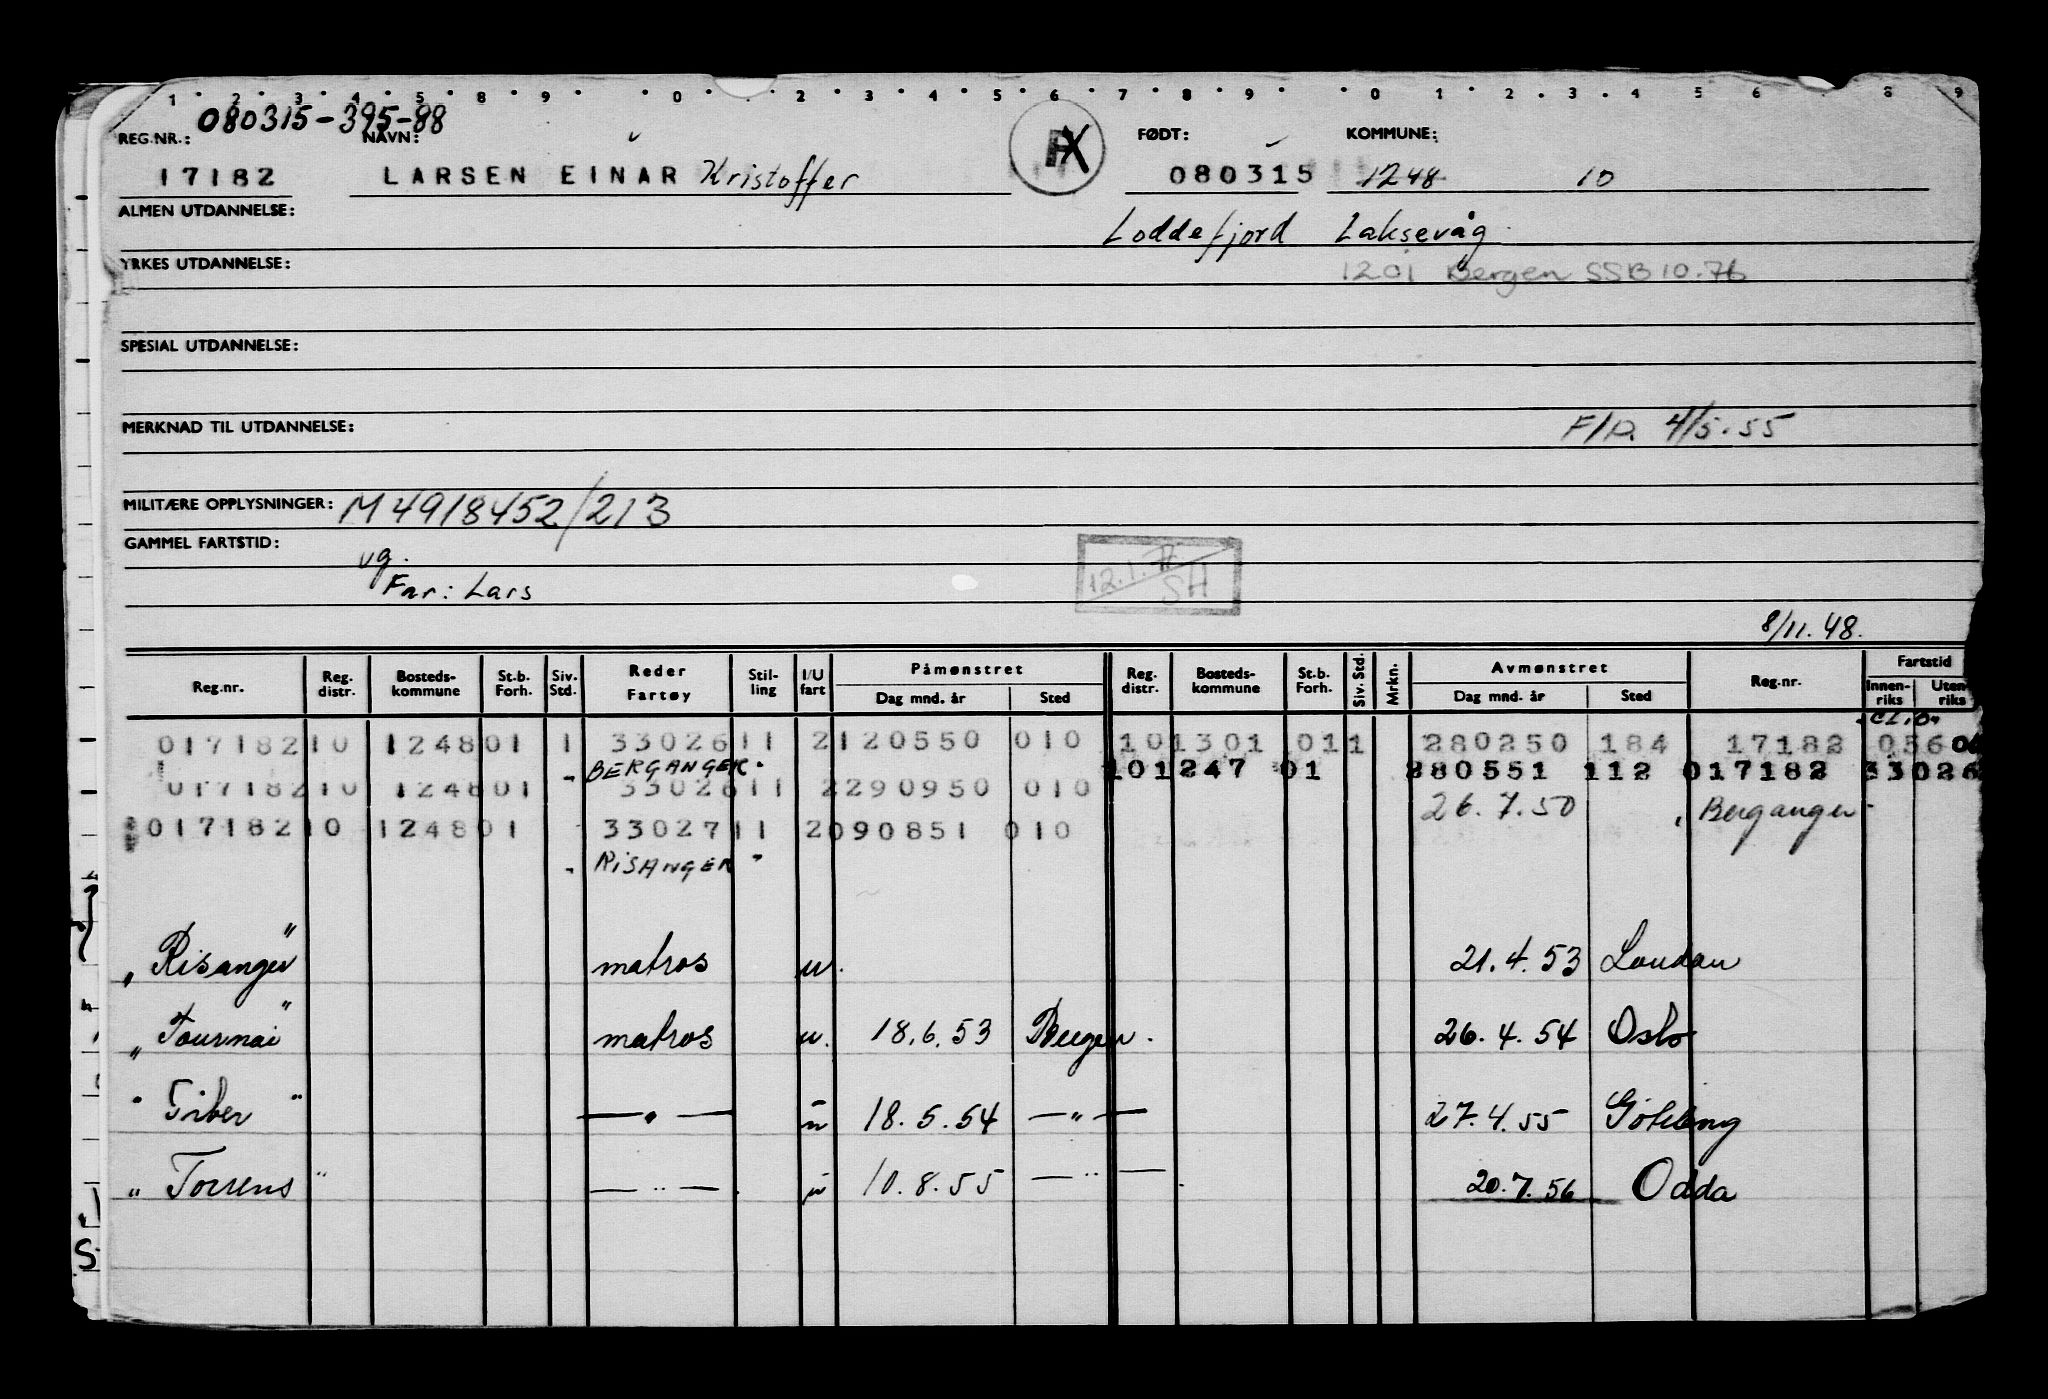 1 2 3 4 5 8 9 0 2 3 4 5 6 7 8 9 0 1 2 3 4 5 6 8 9
080315-395-88
REG.NR.: NAVN: FØDT: KOMMUNE:
17182 LARSEN EINAR Kristoffer 080315 1248 10
ALMEN UTDANNELSE: Loddefjord Laksevåg
YRKES UTDANNELSE: 1201 Bergen SSB 10.76
SPESIAL UTDANNELSE:
MERKNAD TIL UTDANNELSE: F/P. 4/5.55
MILITÆRE OPPLYSNINGER: M 4918452/213
GAMMEL FARTSTID:
vg.
Far: Lars
12.1.77 SH
8/11.48.
Reg.nr. Reg. distr. Bosteds-kommune St.b. Forh. Siv. Std. Reder Fartøy Stil-ling I/U fart Påmønstret Dag mnd. år Sted Reg. distr. Bosteds-kommune St.b. Forh. Siv. Std. Mrkn. Avmønstret Dag mnd. år Sted Reg.nr. Fartstid Innen-riks Uten-riks
01718210 124801 1 3302611 2120550 010 101301 011 280250 184 17182 056
"BERGANGER" 101247 01 280551 112 017182 33026
01718210 124801 3302611 2290950 010 26.7.50 "Berganger"
01718210 124801 3302711 2090851 010
"RISANGER"
"Risanger" matros u. 21.4.53 London
"Tournai" matros u. 18.6.53 Bergen. 26.4.54 Oslo
"Tiber" — " — u 18.5.54 — " — 27.4.55 Göteborg
"Torrens" — " — u 10.8.55 — " — 20.7.56 Odda